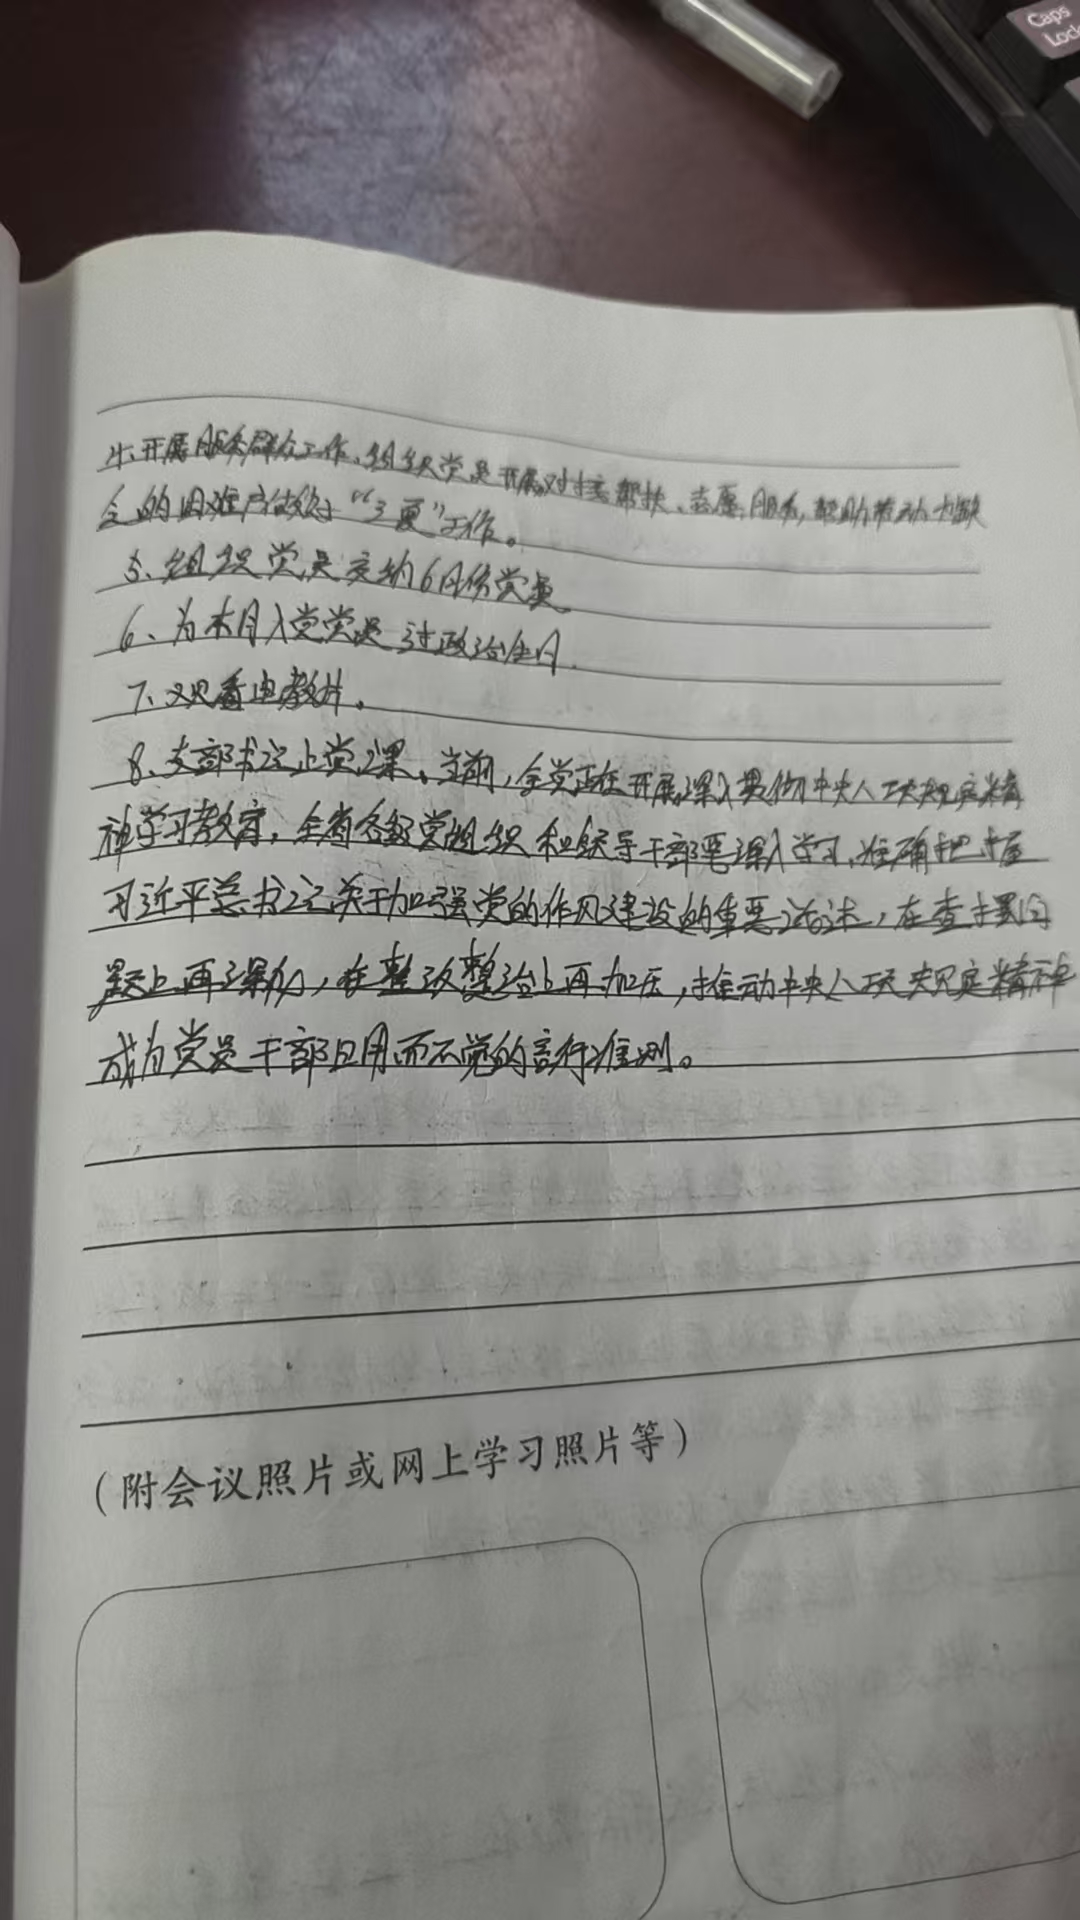 Caps
Lock
4、开展服务群众工作、组织党员开展对接帮扶、志愿服务,帮助劳动力缺
乏的困难户做好“三夏”工作。
5、组织党员交纳6月份党费。
6、为本月入党党员过政治生日.
7、观看电教片。
8、支部书记上党课。当前,全党正在开展深入贯彻中央八项规定精
神学习教育,全省各级党组织和领导干部要深入学习、准确把握
习近平总书记关于加强党的作风建设的重要论述,在查摆问
题上再深入,在整改整治上再加压,推动中央八项规定精神
成为党员干部日用而不觉的言行准则。
(附会议照片或网上学习照片等)